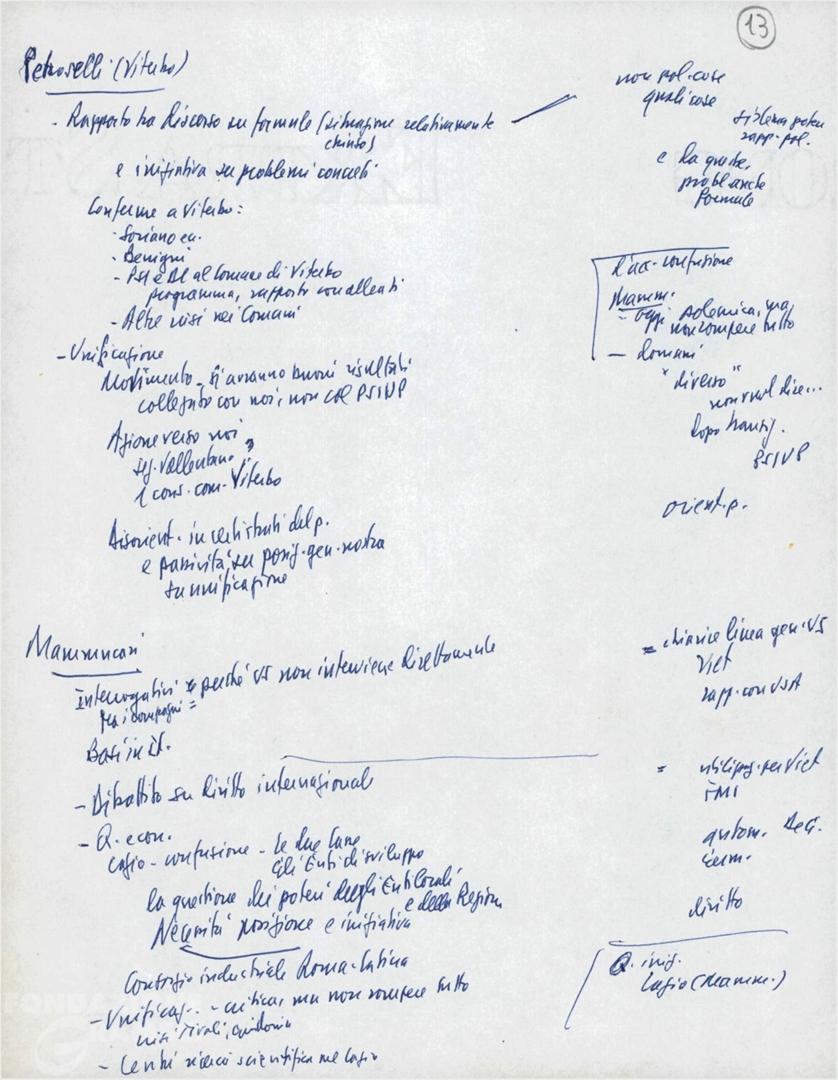 13
Petroselli (Viterbo)
- Rapporto tra discorso su formule (situazione relativamente
chiusa)
e iniziativa su problemi concreti
Conferme a Viterbo:
- Soriano
- Benigni
- PSI e DC al Comune di Viterbo
programma, rapporto con allenti
- Altre crisi nei Comuni
- Unificazione
Movimento - si avranno buoni risultati
collegato con noi, non col PSIUP
Azione verso noi
seg. Vallerano
1 cons. com. Viterbo
Disorient. in certi strati del p.
e passività su posiz. gen. nostra
su unificazione
non pol. cose
quali cose
sistema potere
rapp. pol.
e da queste,
probl. anche
formule
D'acc. confusione
Mamm.
= oggi polemica, ma
non rompere tutto
- domani
"diverso"
non vuol dire...
dopo transiz.
PSIUP
orient. p.
Mammucari
Interrogativi = perché US non interviene direttamente
tra i compagni =
Basi in it.
- Dibattito su diritto internazionale
- Q. econ.
Lazio - confusione - le due lane
Gli Enti di sviluppo
la questione dei poteri degli Enti locali
e della Regione
Necessità posizione e iniziativa
Consorzio industriale Roma-Latina
- Unificaz. - criticar ma non rompere tutto
crisi Tivoli, Guidonia
- Centri ricerca scientifica nel Lazio
= chiarire linea gen. US
Viet
rapp. con USA
= Viet
FMI
autom.
diritto
Q. iniz.
Lazio (Mamm.)
FONDAZIONE